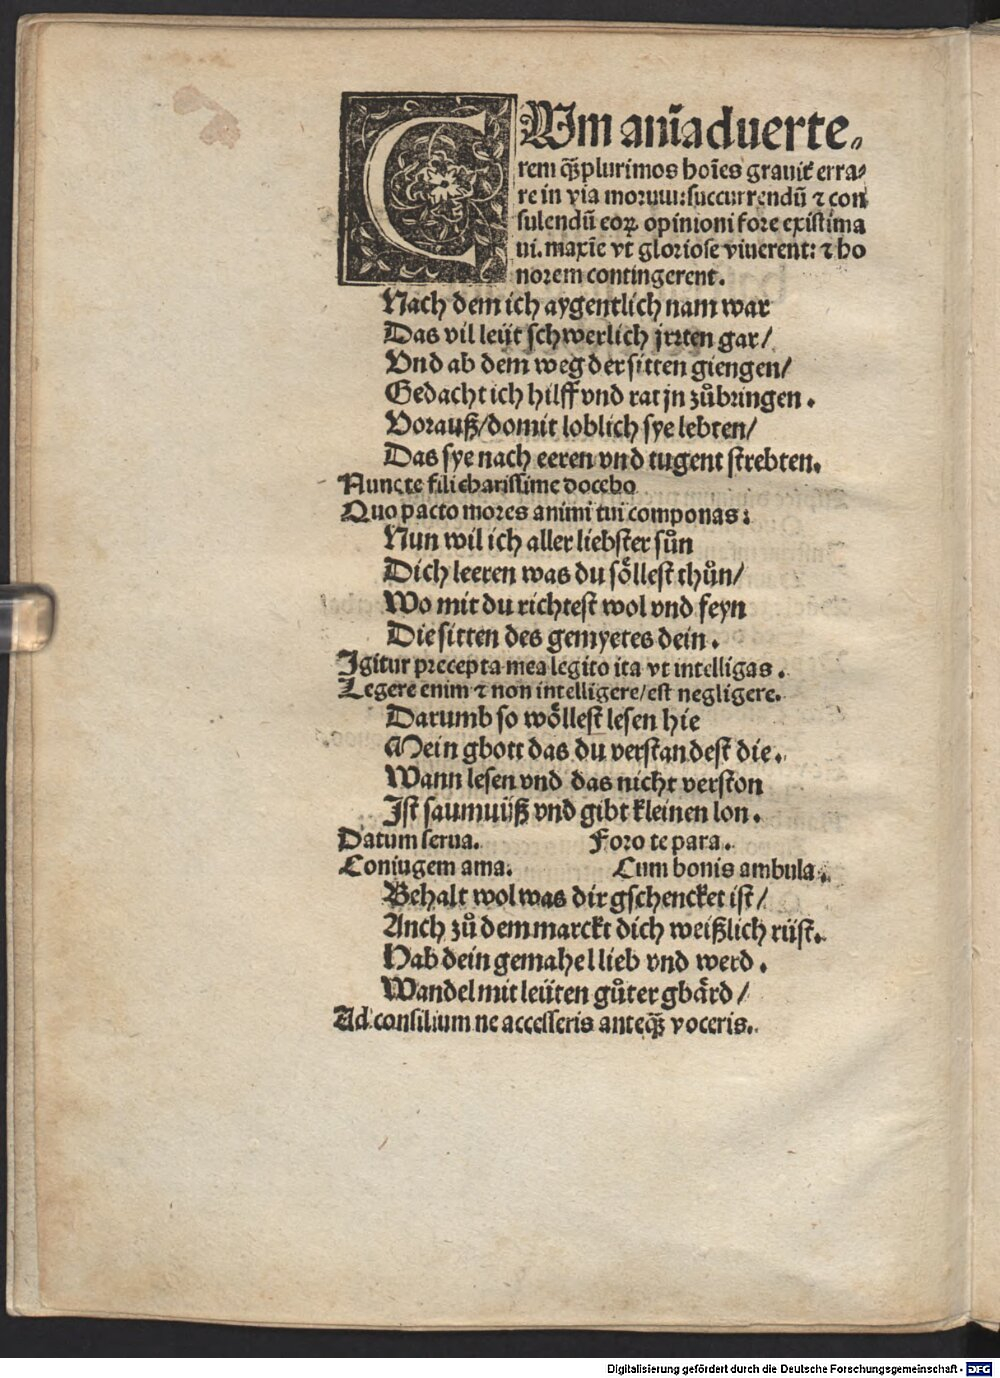 CUm anīaduerte⸗
rem q̄ꝫplurimos hoīes grauiť erra⸗
re in via morum:succurrendū ⁊ con
sulendū eoꝝ opinioni fore existima
ui. maxīe vt gloriose viuerent: ⁊ ho
norem contingerent.
Nach dem ich aygentlich nam war
Das vil leüt schwerlich jrrten gar/
Vnd ab dem weg der sitten giengen/
Gedacht ich hilff vnd rat jn zůbringen.
Vorauß/domit loblich sye lebten/
Das sye nach eeren vnd tugent strebten.
Nunc te fili charissime docebo
Quo pacto mores animi tui componas:
Nun wil ich aller liebster sůn
Dich leeren was du söllest thůn/
Wo mit du richtest wol vnd feyn
Die sitten des gemyetes dein.
Igitur precepta mea legito ita vt intelligas.
Legere enim ⁊ non intelligere/est negligere.
Darumb so wöllest lesen hie
Mein gbott das du verstandest die.
Wann lesen vnd das nicht verston
Ist saumuüß vnd gibt kleinen lon.
Datum serua. Foro te para.
Coniugem ama. Cum bonis ambula.
Behalt wol was dir gschencket ist/
Anch zů dem marckt dich weißlich rüst.
Hab dein gemahel lieb vnd werd.
Wandel mit leüten gůter gbärd/
Ad consilium ne accesseris anteq̄ꝫ voceris.
Digitalisierung gefördert durch die Deutsche Forschungsgemeinschaft - DFG